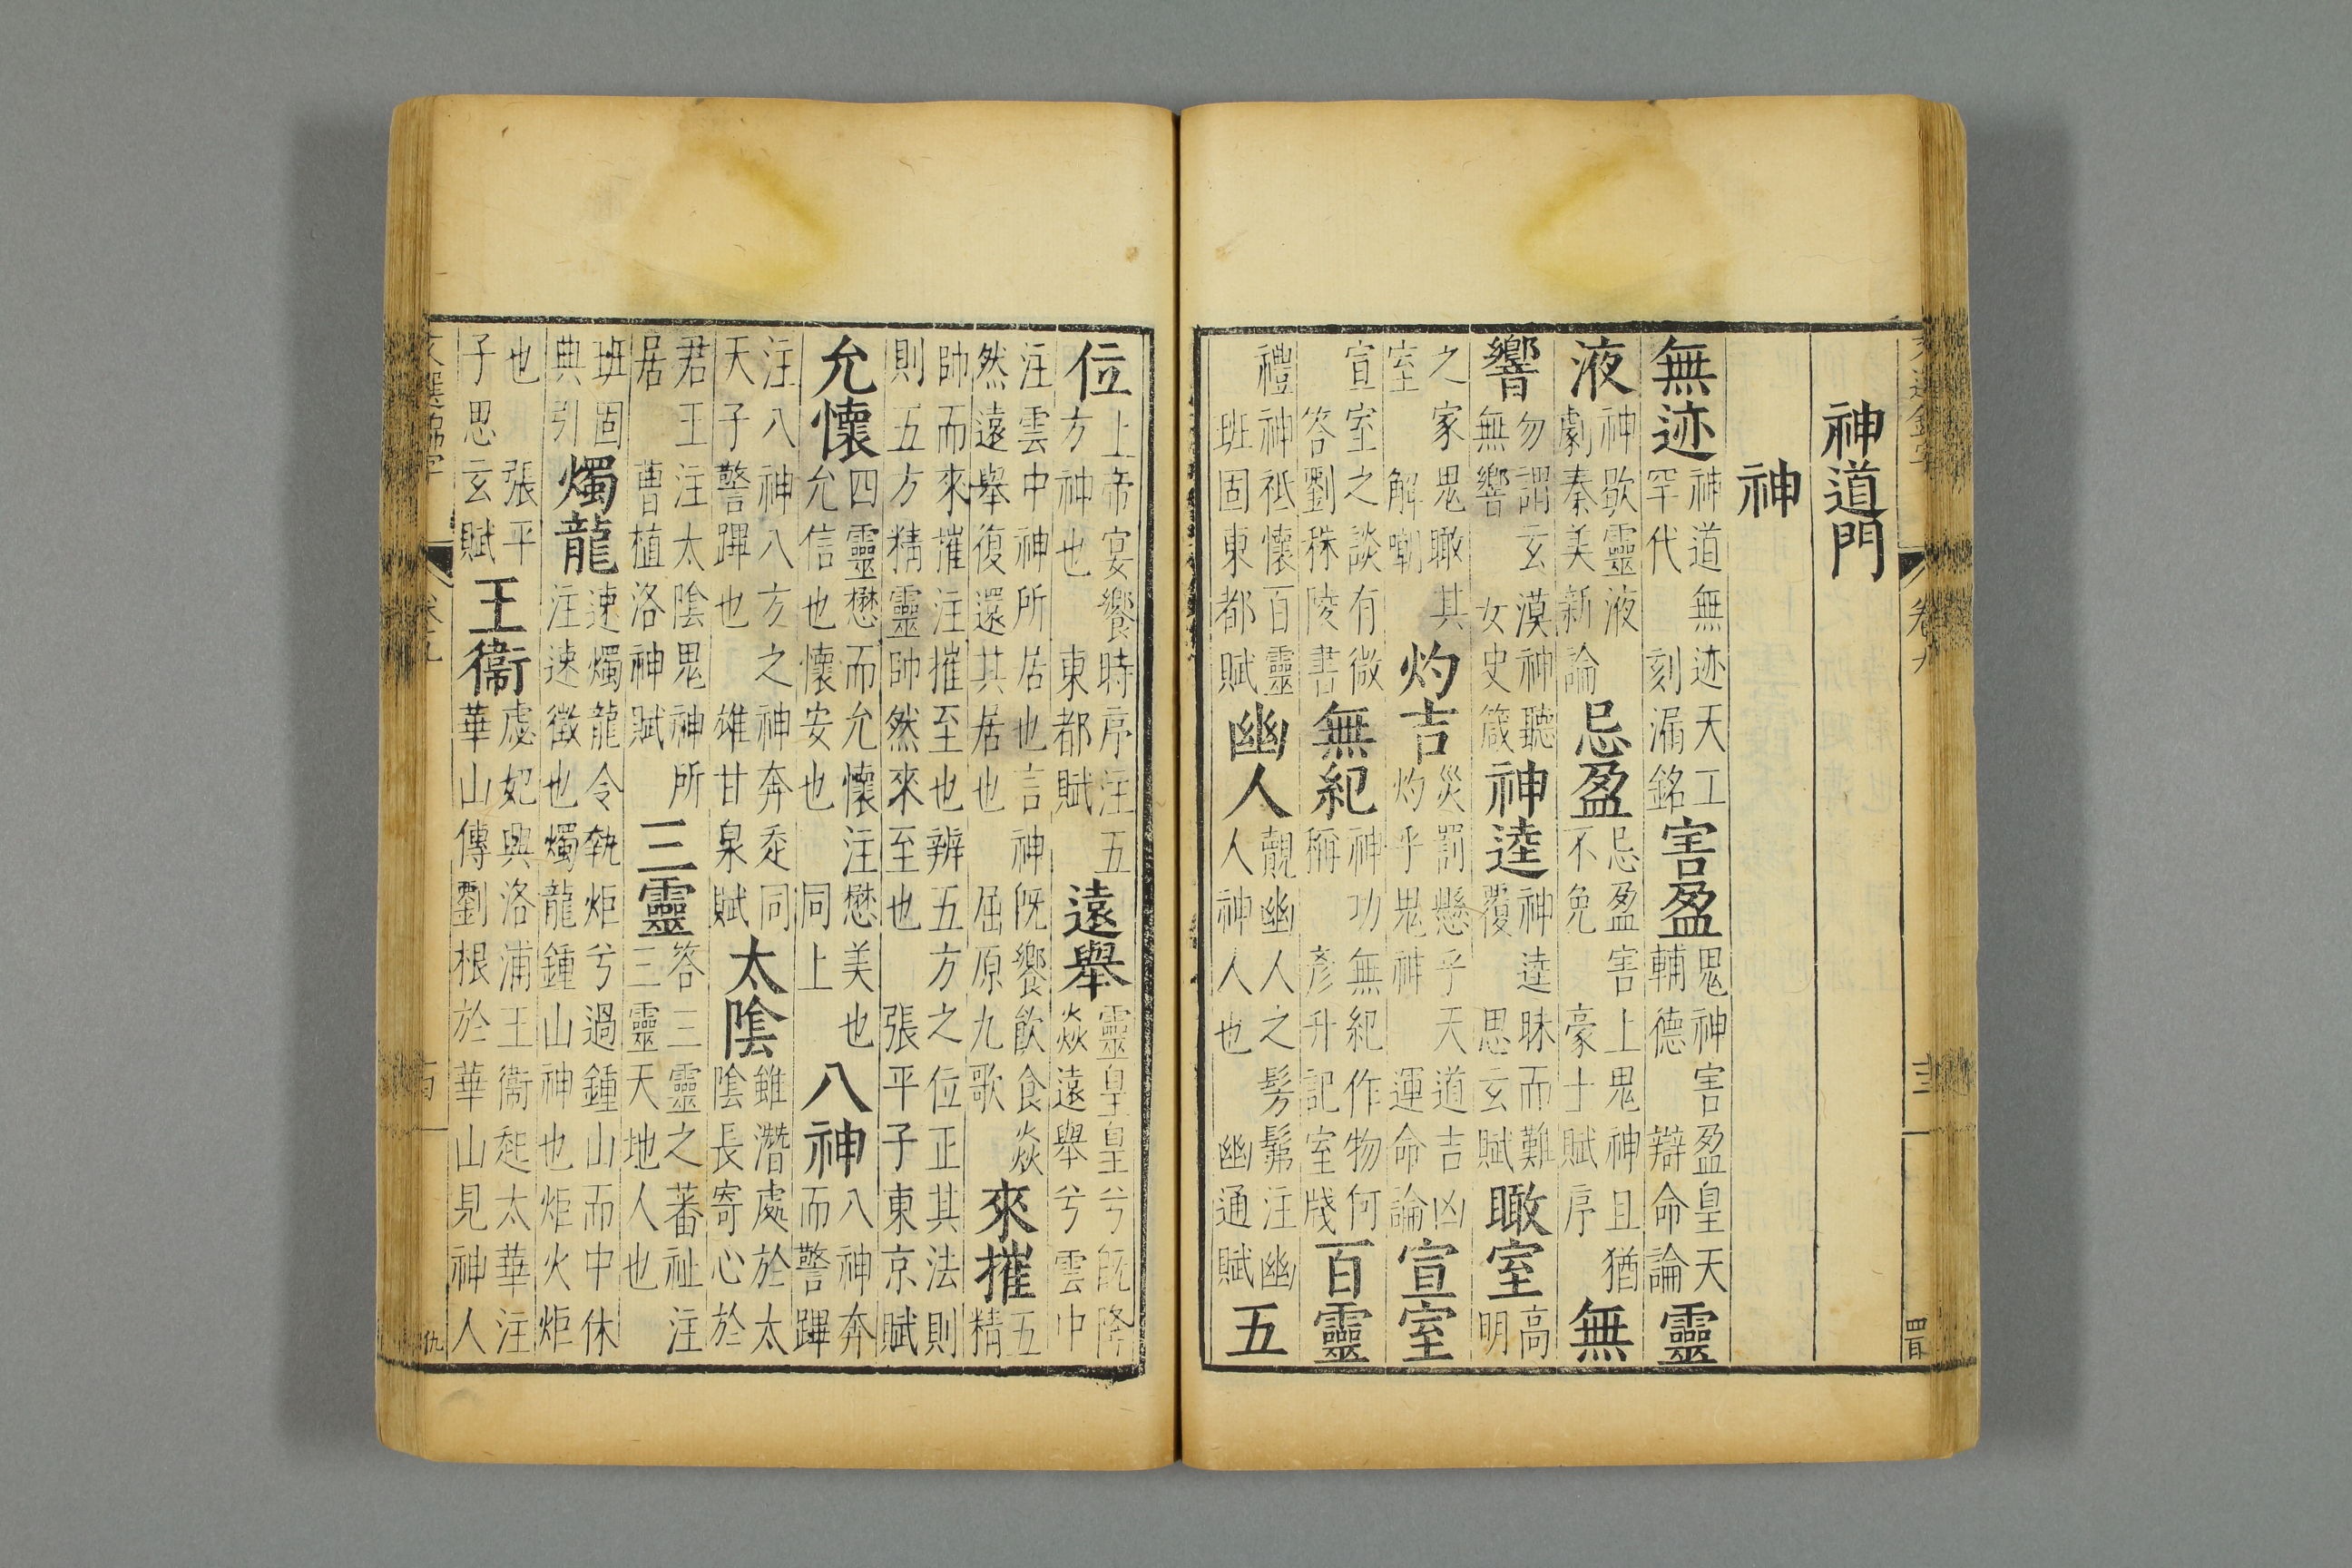 神道門
神
無迹神道無迹天工罕代 刻漏銘害盈鬼神害盈皇天輔德 辯命論靈
液神歇靈液劇秦美新論忌盈忌盈害上鬼神且猶不免 豪士賦序無
響勿謂玄漠神聽無響 女史箴神逵神逵昧而難覆 思玄賦瞰室高明
之家鬼瞰其室 解嘲灼吉災罰懸乎天道吉凶灼乎鬼神 運命論宣室
宣室之談有微 答劉秣陵書無紀神功無紀作物何稱 彥升記室牋百靈
禮神祇懷百靈班固東都賦幽人覿幽人之髣髴注幽人神人也 幽通賦五
位上帝宴饗時序注五方神也 東都賦遠舉靈皇皇兮旣降焱遠舉兮雲中
注雲中神所居也言神旣饗飲食焱然遠舉復還其居也 屈原九歌來摧五精
帥而來摧注摧至也辨五方之位正其法則則五方精靈帥然來至也 張平子東京賦
允懷四靈懋而允懷注懋美也允信也懷安也 同上八神八神奔而警蹕
注八神八方之神奔走同天子警蹕也 雄甘泉賦太陰雖潛處於太陰長寄心於
君王注太陰鬼神所居 曹植洛神賦三靈答三靈之蕃祉注三靈天地人也
班固典引燭龍速燭龍令執炬兮過鍾山而中休注速徵也燭龍鍾山神也炬火炬
也 張平子思玄賦王衙處妃興洛浦王衙起太華注華山傳劉根於華山見神人
卷九